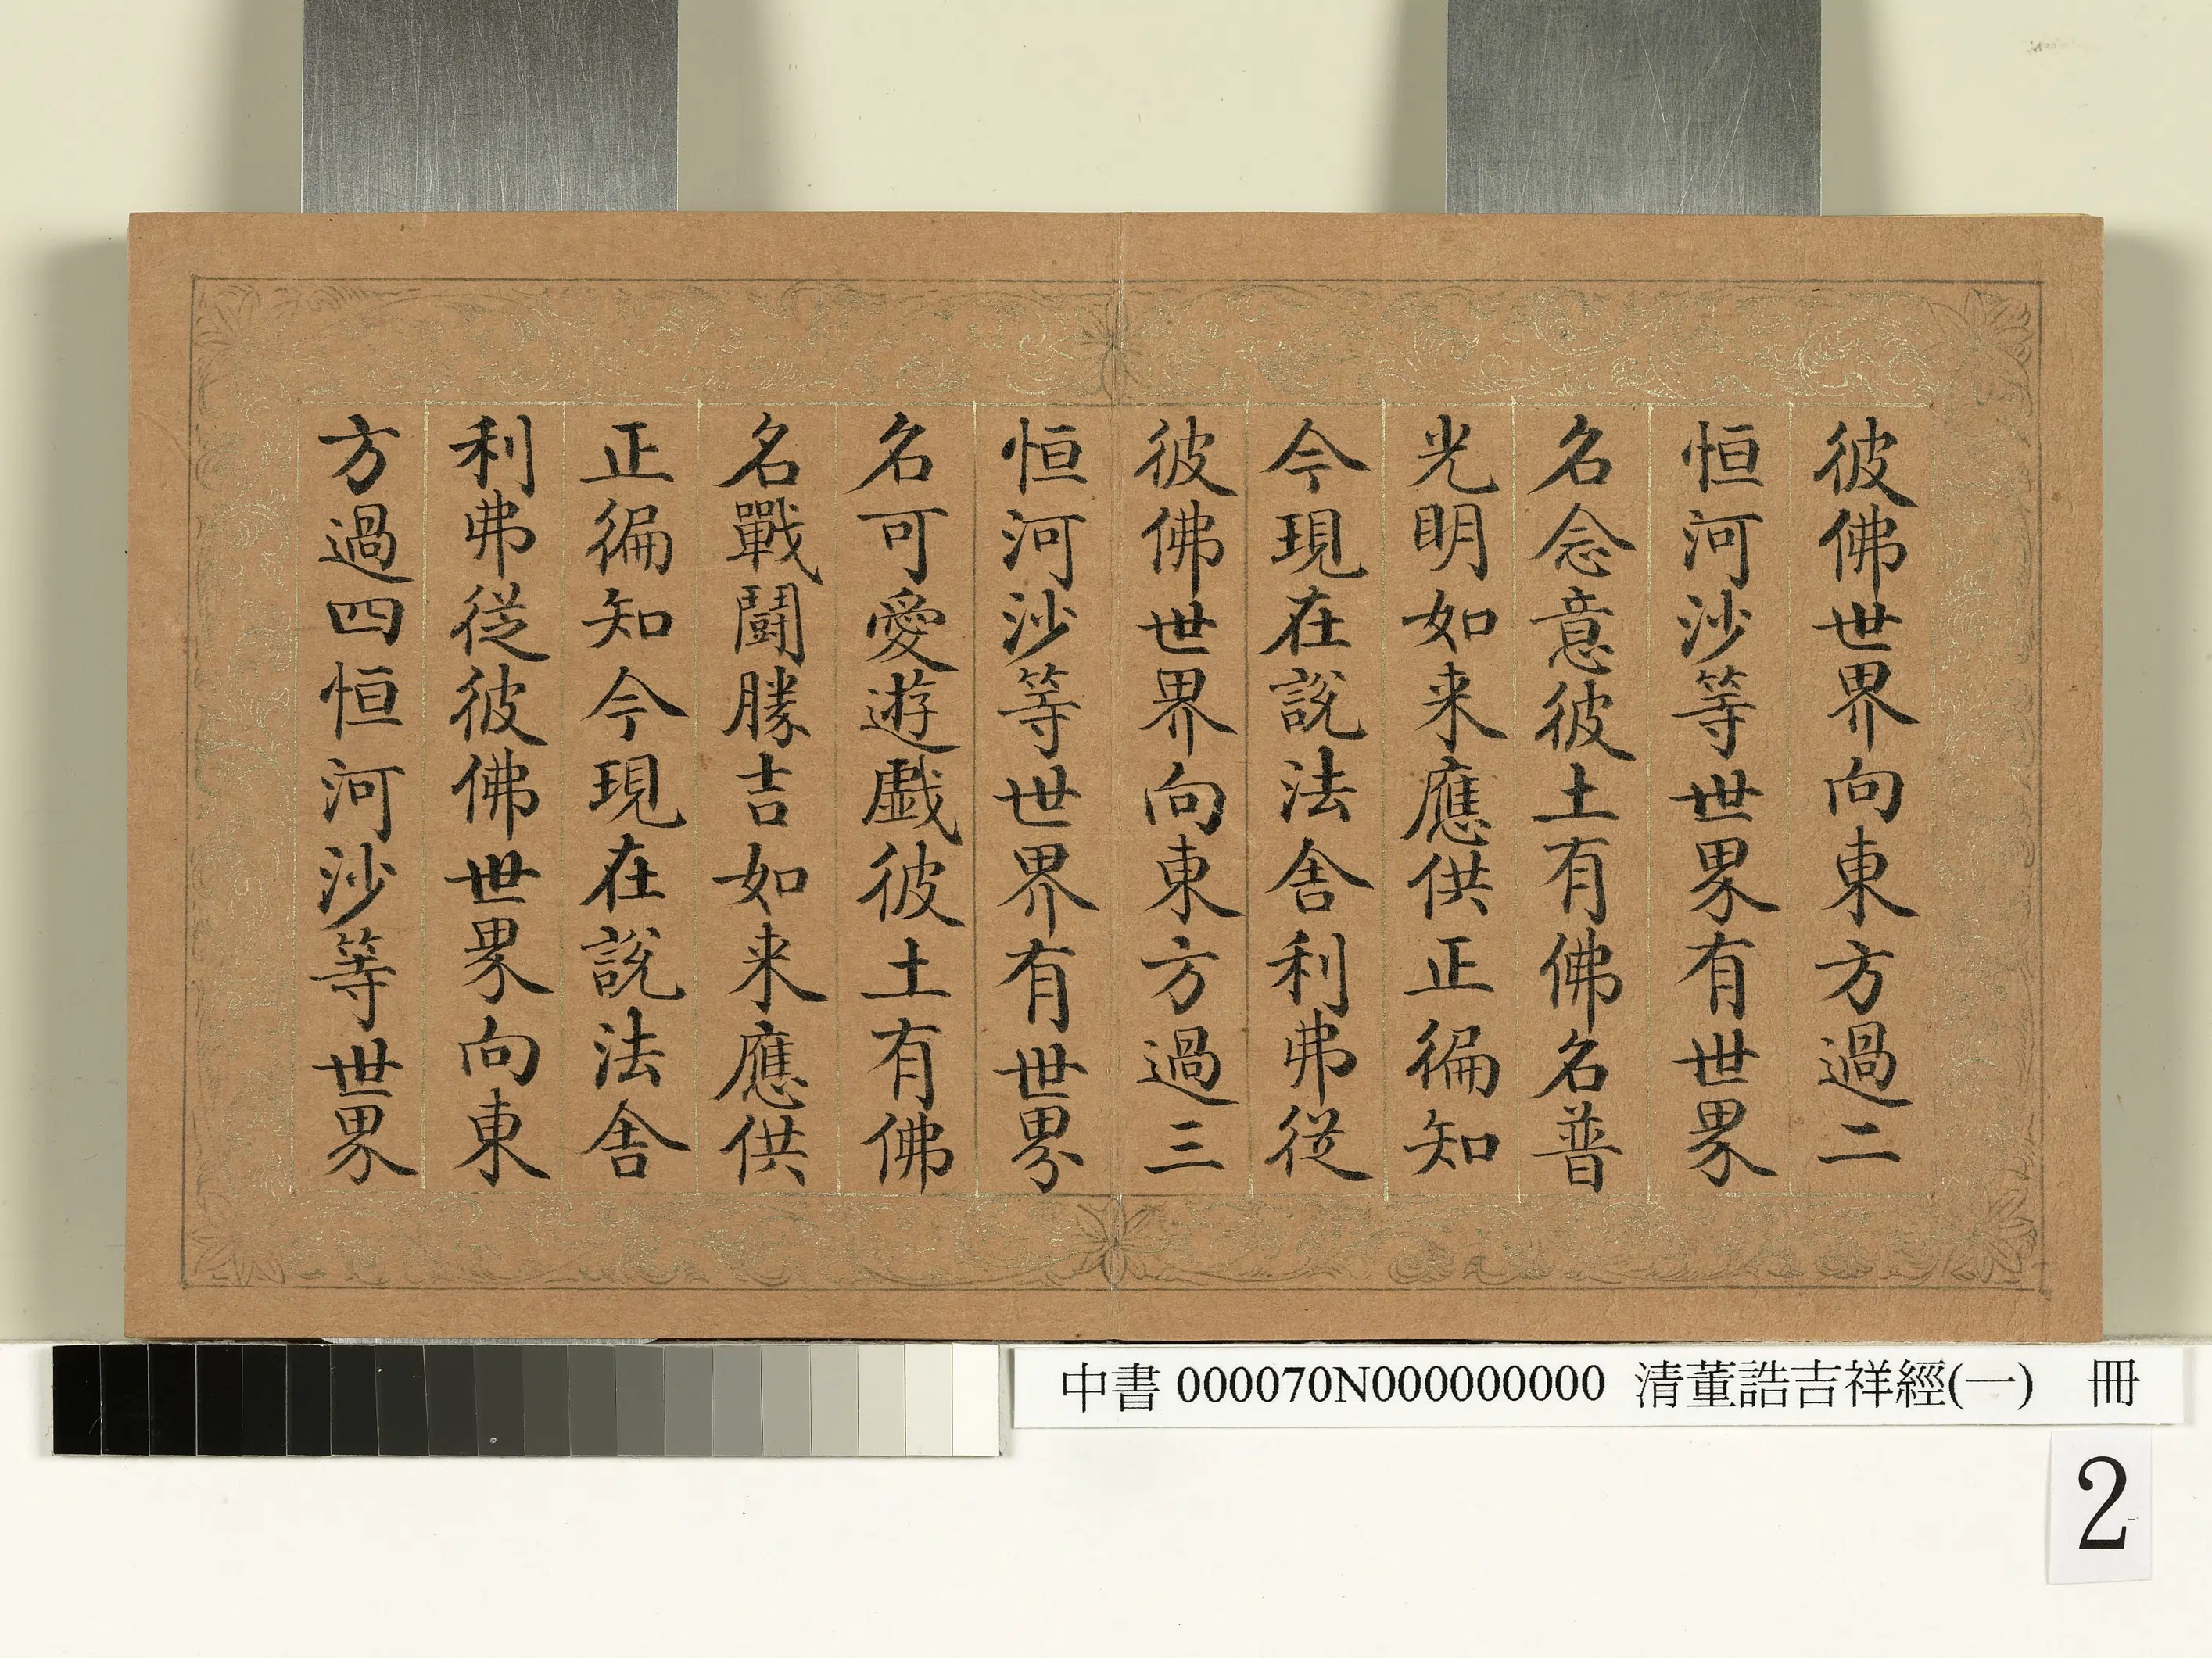 彼佛世界向東方過二
恒河沙等世界有世界
名念意彼土有佛名普
光明如来應供正徧知
今現在說法舍利弗從
彼佛世界向東方過三
恒河沙等世界有世界
名可愛遊戲彼土有佛
名戰鬪勝吉如来應供
正徧知今現在說法舍
利弗從彼佛世界向東
方過四恒河沙等世界
中書 000070N000000000 清董誥吉祥經(一) 冊
2